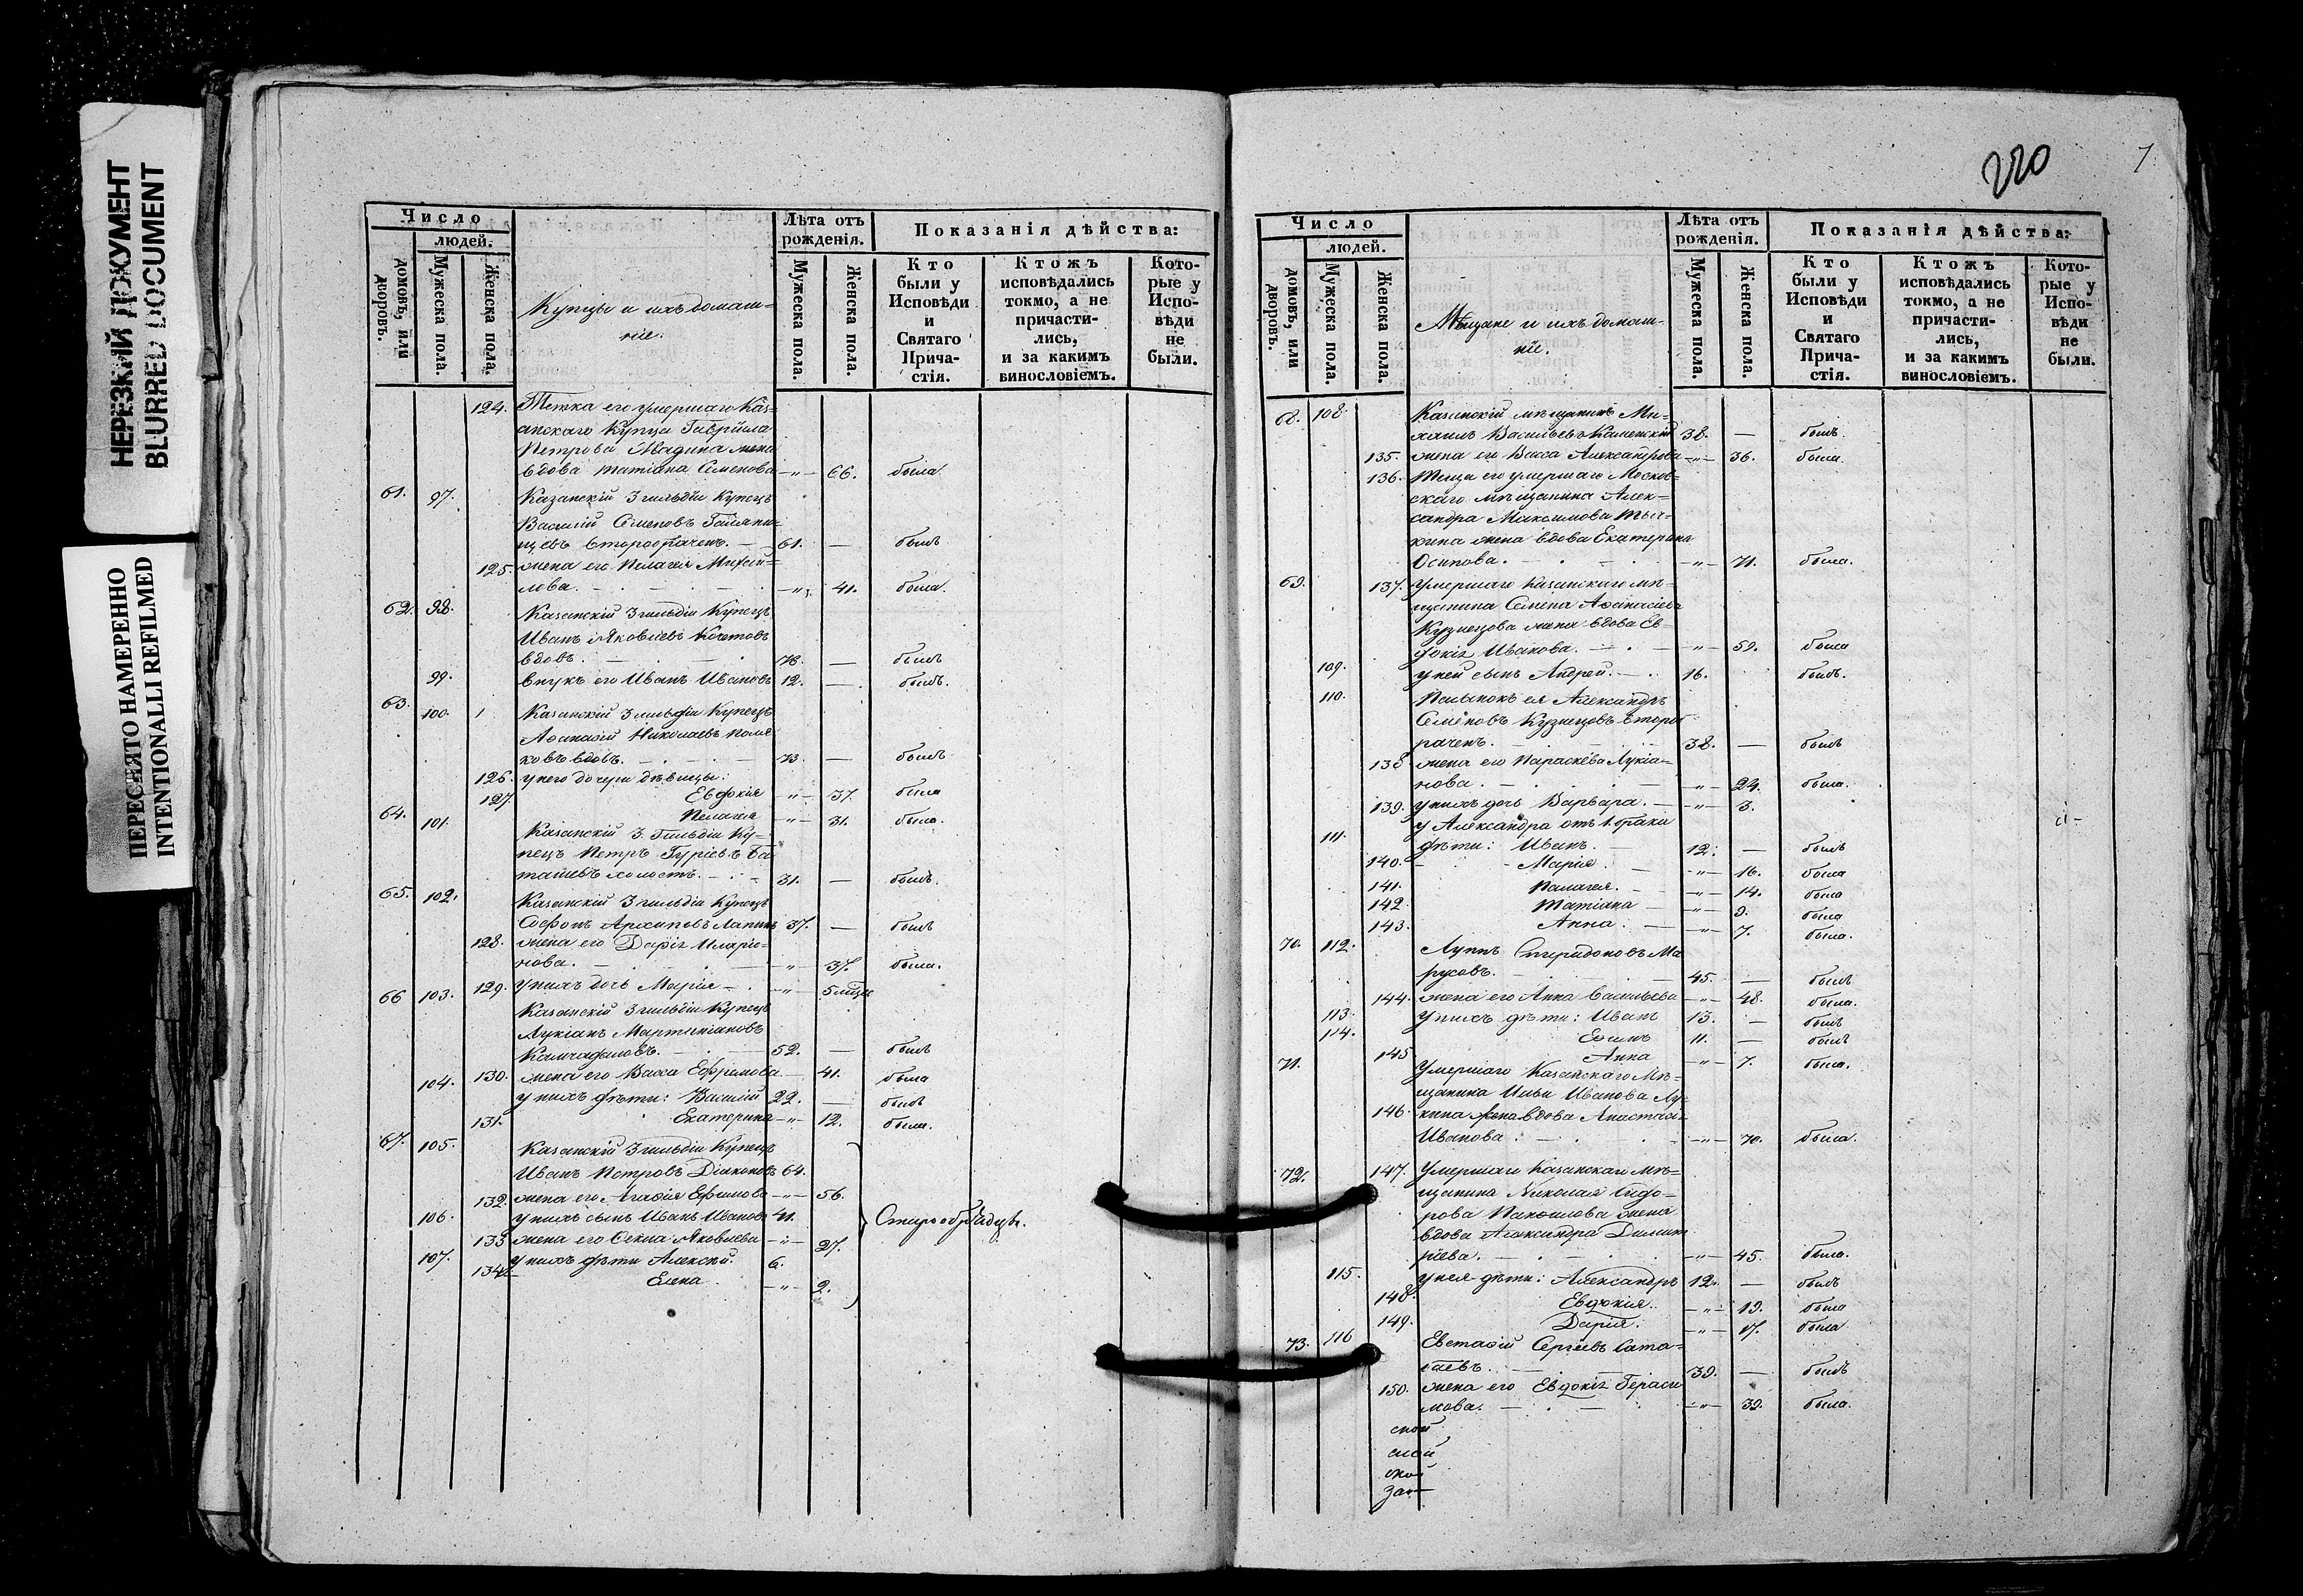 НЕРЕЗКИЙ ДОКУМЕНТ
BLURRED DOCUMENT
ПЕРЕСНЯТО НАМЕРЕННО
INTENTIONALLI REFILMED
Число
людей.
домовъ, или дворовъ.
Мужеска пола.
Женска пола.
Купцы и ихъ домаш-
ніе.
Лѣта отъ
рожденія.
Мужеска пола.
Женска пола.
Показанія дѣйства:
Кто
были у
Исповѣди
и
Святаго
Прича-
стія.
Ктожъ
исповѣдались
токмо, а не
причасти-
лись,
и за какимъ
винословіемъ.
Кото-
рые у
Испо-
вѣди
не
были.
124. Тетка его умершаго Каз-
анскаго Купца Гаврiила
Петрова жена
вдова Татіана Семенова -„- 66. была
61. 97. Казанскій 3 гильдіи Купецъ
Василій Семеновъ
61. — былъ
125. жена его Пелагея Михай-
лова. -„- 41. была.
62. 98. Казанскій 3 гильдіи Купецъ
Иванъ Яковлевъ Кочетовъ
вдовъ. 78. — былъ
99. внукъ его Иванъ Ивановъ 12. — былъ.
63. 100. Казанскій 3 гильдіи Купецъ
Аѳанасій Николаевъ
вдовъ. 73. — былъ
126. у него дочери дѣвицы:
127. Евдокія -„- 37. была
Пелагея -„- 31. была.
64. 101. Казанскій 3. Гильдіи Ку-
пецъ Петръ Гуріевъ Ба
ташевъ холостъ. 31. — былъ.
65. 102. Казанскій 3 гильдіи Купецъ
Архиповъ Лапинъ 37. — былъ
128. жена его Дарія Иларіо-
нова. -„- 37. была.
129. у нихъ дочь Марія -„- 5 мѣся
66 103. Казанскій 3 гильдіи Купецъ
Лукіанъ Мартиніановъ
Камчадаловъ. 52. — былъ
130. жена его Васса Ефремова. 41. была
104. у нихъ дѣти: Василій 22. — былъ
131. Екатерина -„- 12. была.
67. 105. Казанскій 3 гильдіи Купецъ
Иванъ Петровъ Діаконовъ 64.
132. жена его Агафія Ефимова -„- 56.
106. у нихъ сынъ Иванъ Ивановъ 41. Старообрядцы.
133 жена его Яковлева -„- 27.
107. у нихъ дѣти Алексѣй. 6.
134. Елена -„- 2.
220
7
Число
людей.
домовъ, или дворовъ.
Мужеска пола.
Женска пола.
Мѣщане и ихъ домаш-
ніе.
Лѣта отъ
рожденія.
Мужеска пола.
Женска пола.
Показанія дѣйства:
Кто
были у
Исповѣди
и
Святаго
Прича-
стія.
Ктожъ
исповѣдались
токмо, а не
причасти-
лись,
и за какимъ
винословіемъ.
Кото-
рые у
Испо-
вѣди
не
были.
68. 108. Казанскій мѣщанинъ Ми-
хаилъ Васильевъ Каменскій 38. — былъ.
135. жена его Васса Александрова -„- 36. была.
136. Теща его умершаго Москов-
скаго мѣщанина Алек-
сандра Максимова
жена вдова Екатерина
Осипова. -„- 71. была.
69. 137. Умершаго Казанскаго мѣ-
щанина Семена Аѳанасіева
Кузнецова жена вдова Ев-
докія Иванова. -„- 59. была
109. у ней сынъ Андрей. 16. былъ.
110. Пасынокъ ея Александръ
Семеновъ Кузнецовъ второб
раченъ. 38. — былъ
138 жена его Параскева Лукіа-
нова. -„- 24. была.
139. у нихъ дочь Варвара. -„- 3.
у Александра отъ 1. брака
111. дѣти: Иванъ. 12. — былъ
140. Марія. -„- 16. была
141. Палагея. -„- 14. была
142 Татіана -„- 9. была
143. Анна. -„- 7. была.
70. 112. Луппъ Спиридоновъ Ма
русовъ. 45. — былъ
144. жена его Анна Васильева -„- 48. была.
113. у нихъ дѣти: Иванъ 13. — былъ
114. Ефимъ 11. — былъ
145 Анна -„- 7. была.
71. Умершаго Казанскаго Мѣ-
щанина Ильи Иванова Лу-
146. кина жена вдова Анастасія
Иванова. -„- 70. была.
72. 147. Умершаго Казанскаго мѣ-
щанина Николая Сидо-
рова жена
вдова Александра Димит
ріева. -„- 45. была.
115. у нея дѣти: Александръ 12. — былъ
148. Евдокія. -„- 19. была
149. Дарія. -„- 17. была
73. 116 Евстафій Сергіевъ
39. — былъ
150. жена его Евдокія Гераси
мова. -„- 39. была.